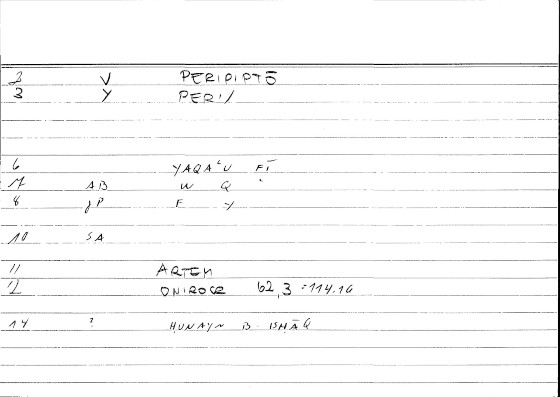 2 V PERIPIPTŌ
3 Y PERI/
6 YAQAʿU FĪ
7 AB W Q ʿ
8 JP F Y
10 SA
11 ARTEM
12 ONIROCR 62,3 = 114.16
14 ? ḤUNAYN B. ISḤĀQ